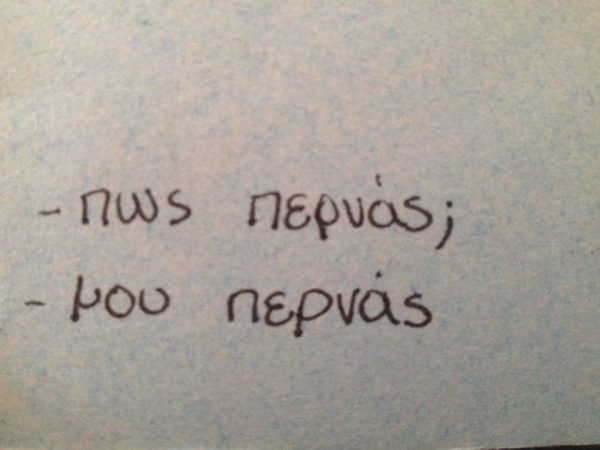 - πως περνάς;
- μου περνάς